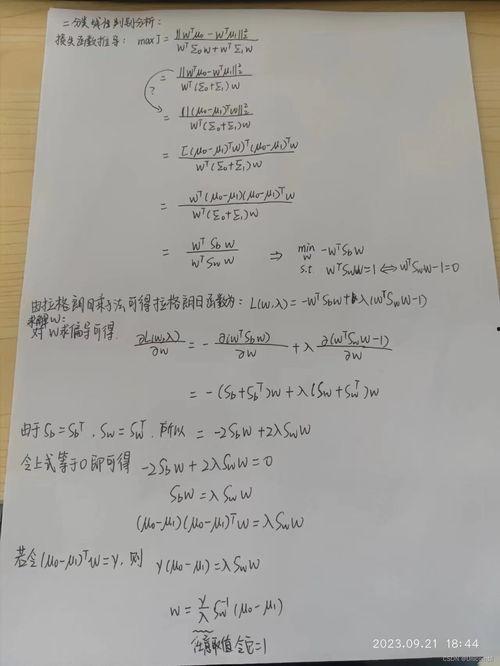 二分类线性判别分析：
损失函数推导： max J = ||wᵀμ₀ - wᵀμ₁||₂² / (wᵀΣ₀w + wᵀΣ₁w)
= ||wᵀμ₀ - wᵀμ₁||₂² / (wᵀ(Σ₀+Σ₁)w)
?
= ||(μ₀-μ₁)ᵀw||₂² / (wᵀ(Σ₀+Σ₁)w)
= [(μ₀-μ₁)ᵀw]ᵀ(μ₀-μ₁)ᵀw / (wᵀ(Σ₀+Σ₁)w)
= wᵀ(μ₀-μ₁)(μ₀-μ₁)ᵀw / (wᵀ(Σ₀+Σ₁)w)
= wᵀS_b w / (wᵀS_w w) ⇒ min_w -wᵀS_b w
s.t. wᵀS_w w=1 ⇔ wᵀS_w w-1=0
由拉格朗日乘子法可得拉格朗日函数为： L(w,λ) = -wᵀS_b w + λ(wᵀS_w w-1)
求解w：
对w求偏导可得 ∂L(w,λ)/∂w = - ∂(wᵀS_b w)/∂w + λ ∂(wᵀS_w w-1)/∂w
= -(S_b+S_bᵀ)w + λ(S_w+S_wᵀ)w
由于S_b=S_bᵀ，S_w=S_wᵀ，所以 = -2S_b w + 2λS_w w
令上式等于0即可得 -2S_b w + 2λS_w w = 0
S_b w = λS_w w
(μ₀-μ₁)(μ₀-μ₁)ᵀw = λS_w w
若令(μ₀-μ₁)ᵀw=γ，则 γ(μ₀-μ₁) = λS_w w
w = γ/λ S_w⁻¹(μ₀-μ₁)
任意取值，令它=1
2023.09.21 18:44